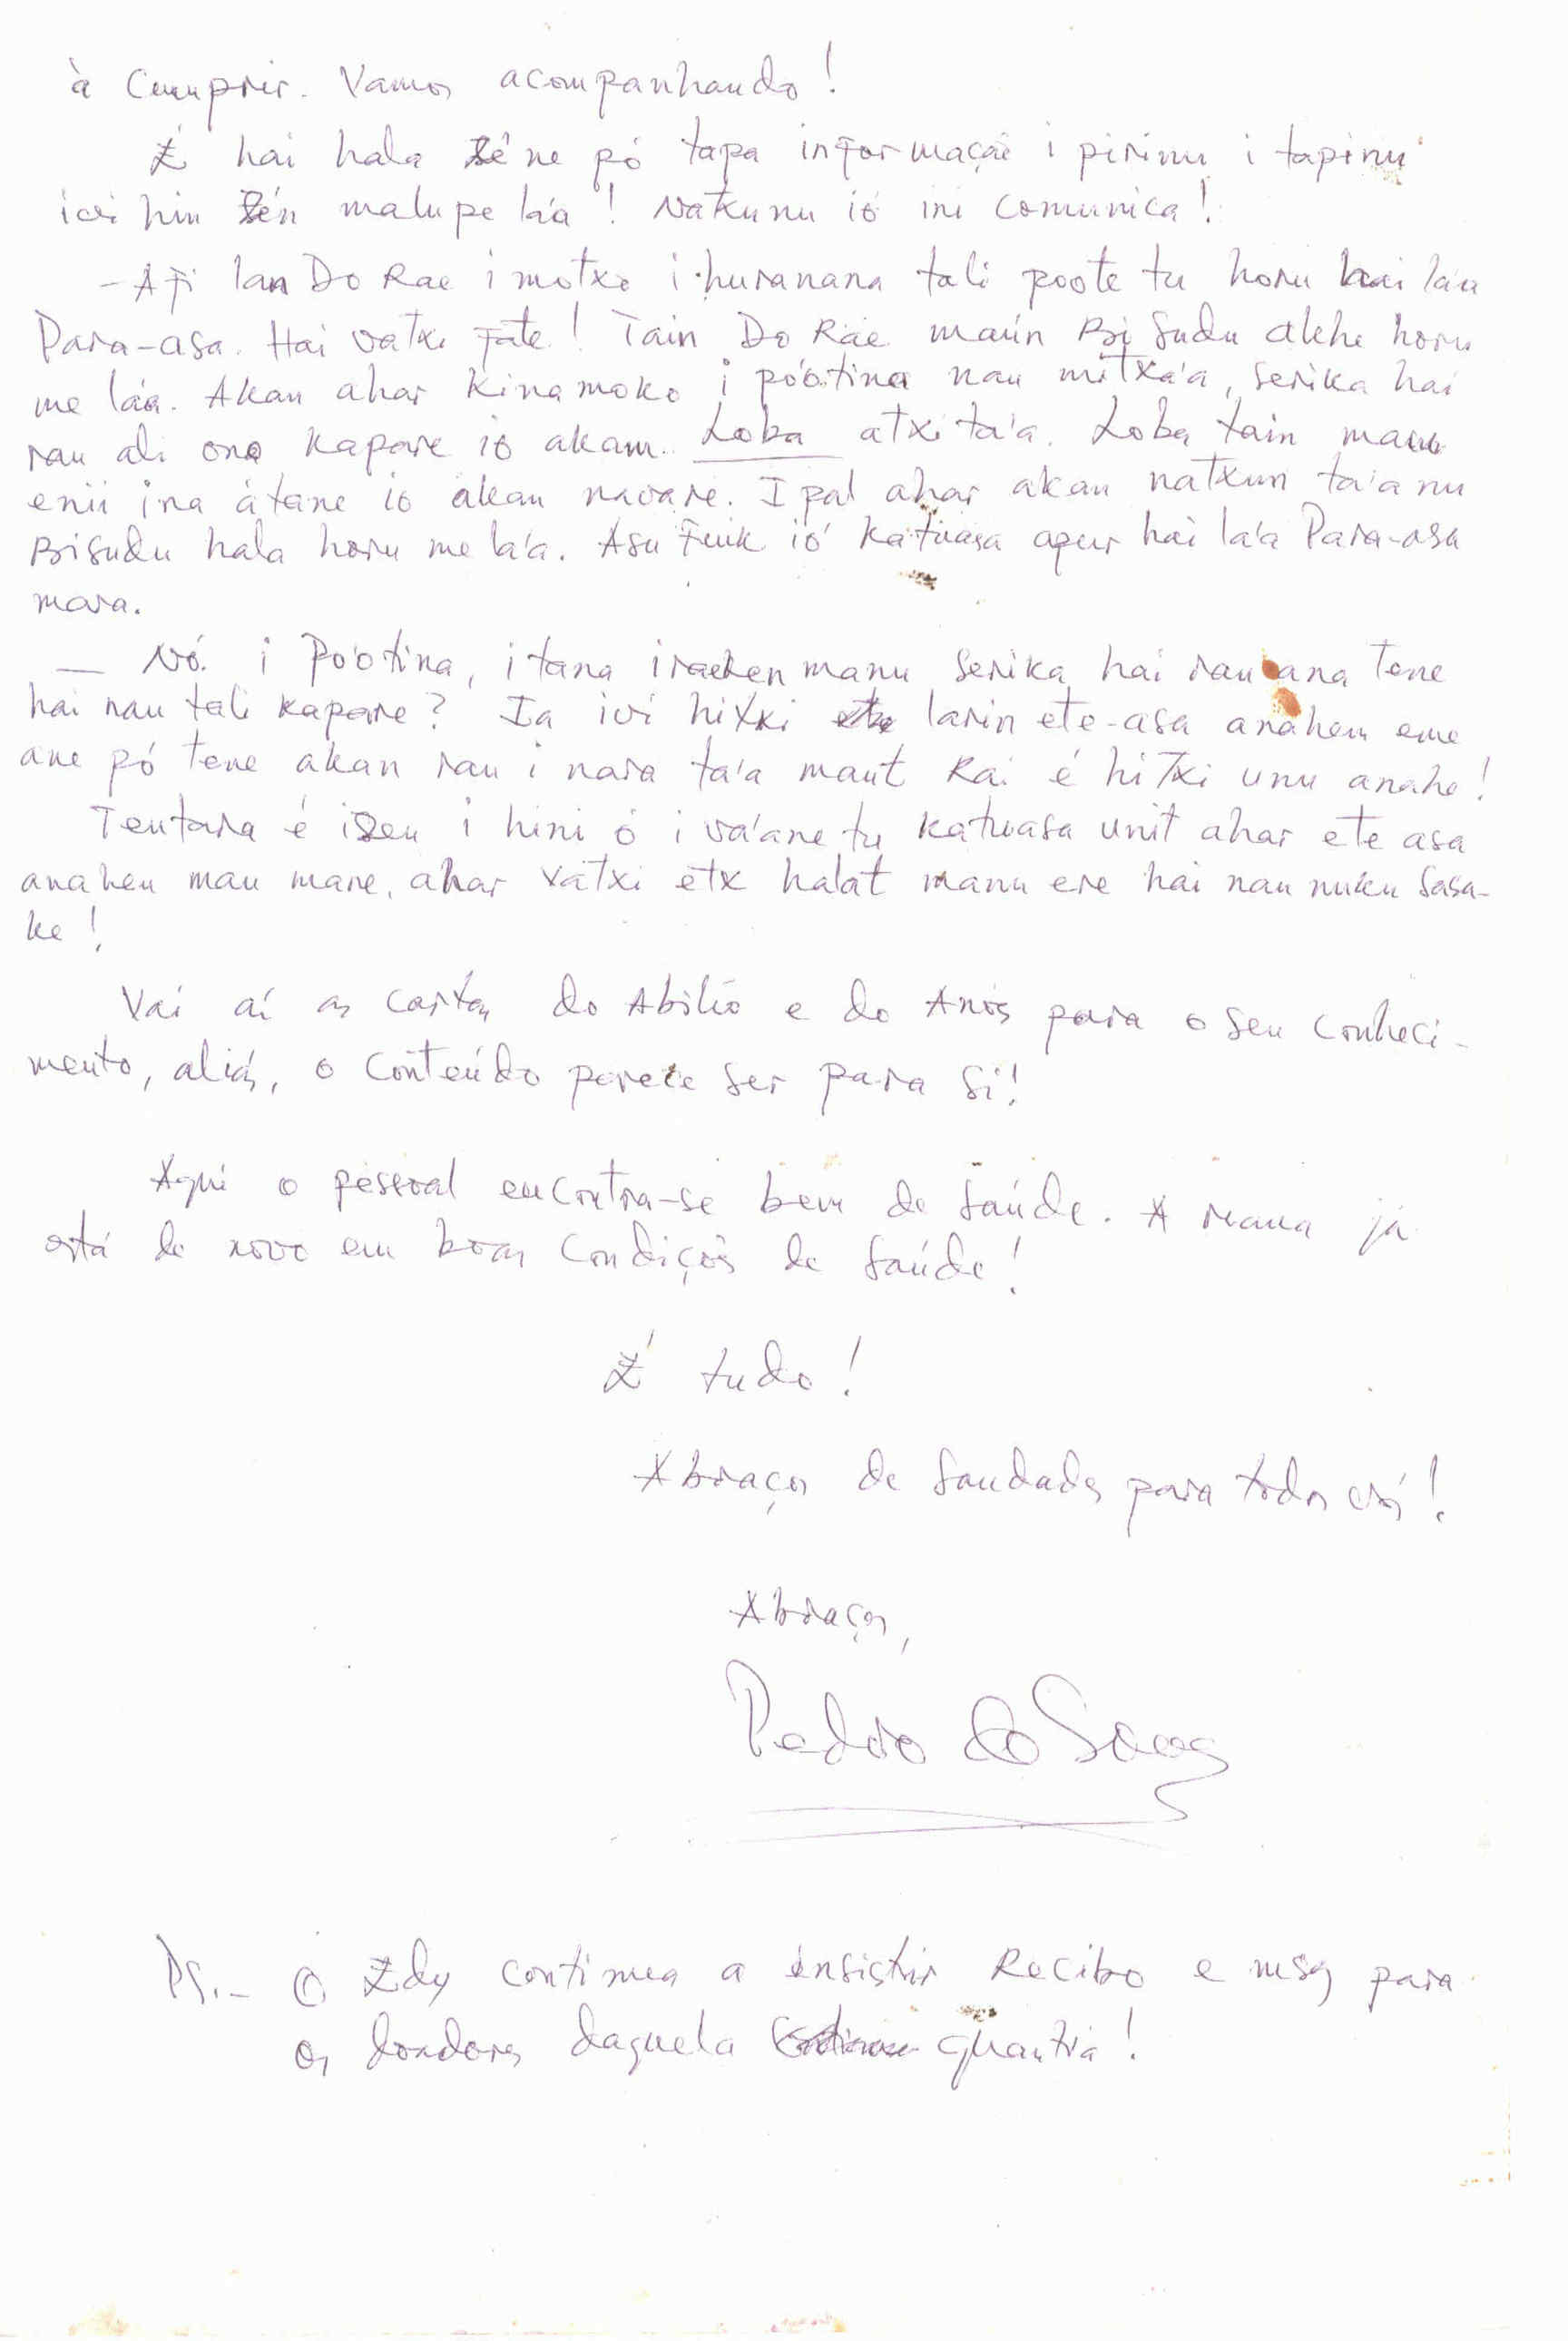 à cumprir. Vamos acompanhando!
É hai hala Zé ne pó tapa informação i pirinu i tapinu
ivi hin Zén malupe la'a! Natkunu ió ini comunica!
- Afi lan Do Rae i motxo i huranana tali poote tu horu hai la'a
Para-asa. Hai vatxi fate! Tain Do Rae maún Bi Sudu alehe horu
me la'a. Akan ahar kinamoko i po'otina nau mitxa'a, serika hai
rau ali ona kapare ió akam. Loba atxi ta'a. Loba tain
enii ina átane ió akan navare. I pal ahar akan natxun ta'a nu
Bisudu hala horu me la'a. Asu Fuik ió katuasa apur hai la'a Para-asa
mara.
- Nó. i Po'otina, i tana manu serika hai rau ana tene
hai nau tali kapare? Ia ivi hitxi larin ete-asa anahem eme
ane pó tene akan rau i nara ta'a maut kai é hitxi unu anahe!
Tentara é isen i hini ó i va'ane tu katuasa unit ahar ete asa
anahen mau mare, ahar vatxi etx halat manu ere hai nau nuku sasa-
ke!
Vai aí as cartas do Abílio e do Anós para o seu conheci-
mento, aliás, o conteúdo parece ser para si!
Aqui o pessoal encontra-se bem de saúde. A mana já
está de novo em boas condições de saúde!
É tudo!
Abraços de saudades para todos vós!
Abraços,
Pedro do
PS.- O Edy continua a insistir Recibo e msg para
os doadores daquela quantia!